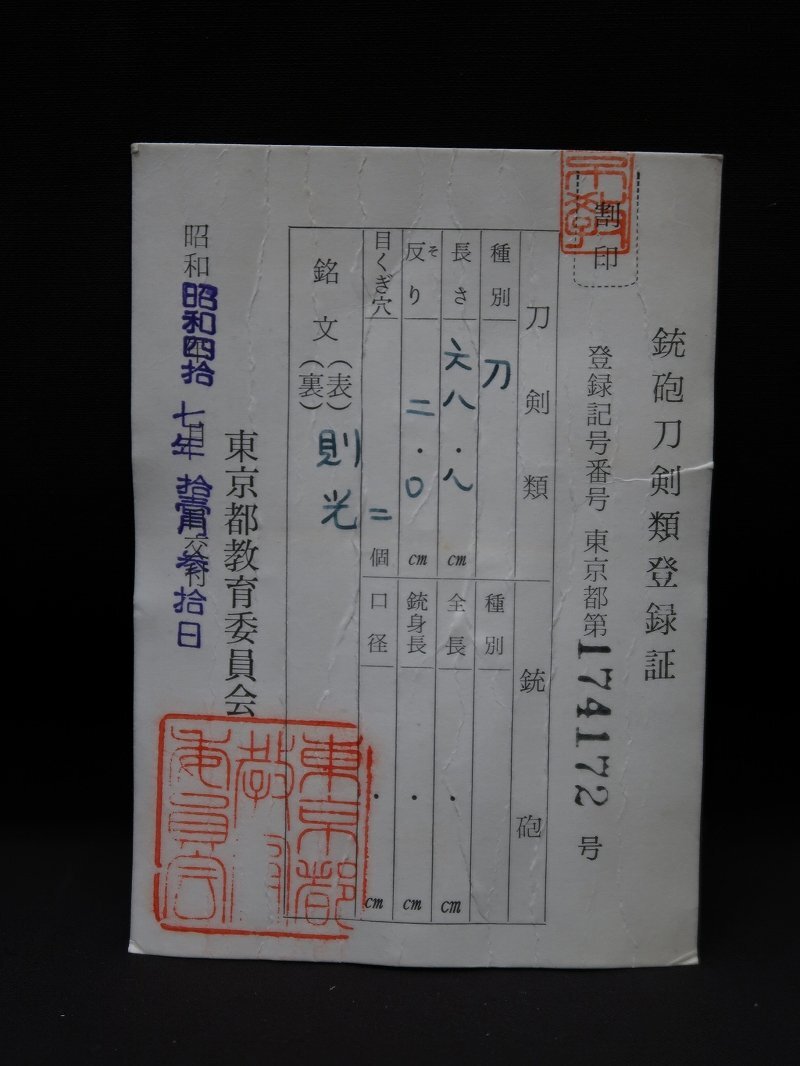 銃砲刀剣類登録証
割印
登録記号番号 東京都第174172号
刀剣類
種別 刀
長さ 六八.八 cm
反り そ 二.〇 cm
目くぎ穴 二 個
銘文 (表) 則光
(裏)
銃砲
種別
全長 . cm
銃身長 . cm
口径 . cm
東京都教育委員会
昭和 昭和四拾七年拾壹月参拾日 交付
東京都教育委員会